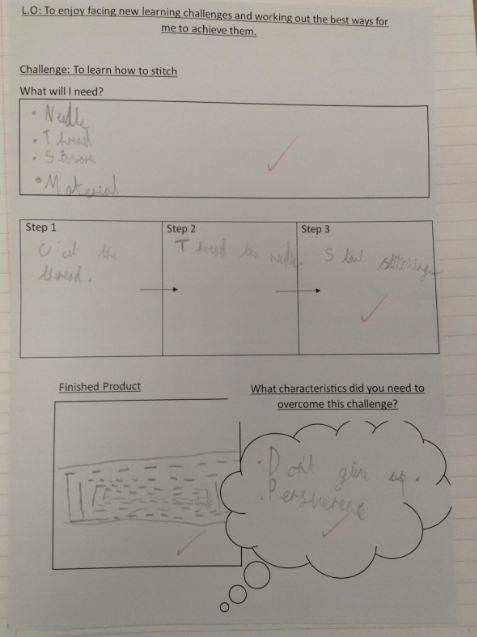 L.O: To enjoy facing new learning challenges and working out the best ways for
me to achieve them.
Challenge: To learn how to stitch
What will I need?
• Needle
• Thread
•
• Material
Step 1
Cut the
thread.
Step 2
Thred the needle.
Step 3
Start stitching
Finished Product
What characteristics did you need to
overcome this challenge?
• Don't give up.
• Perserverence